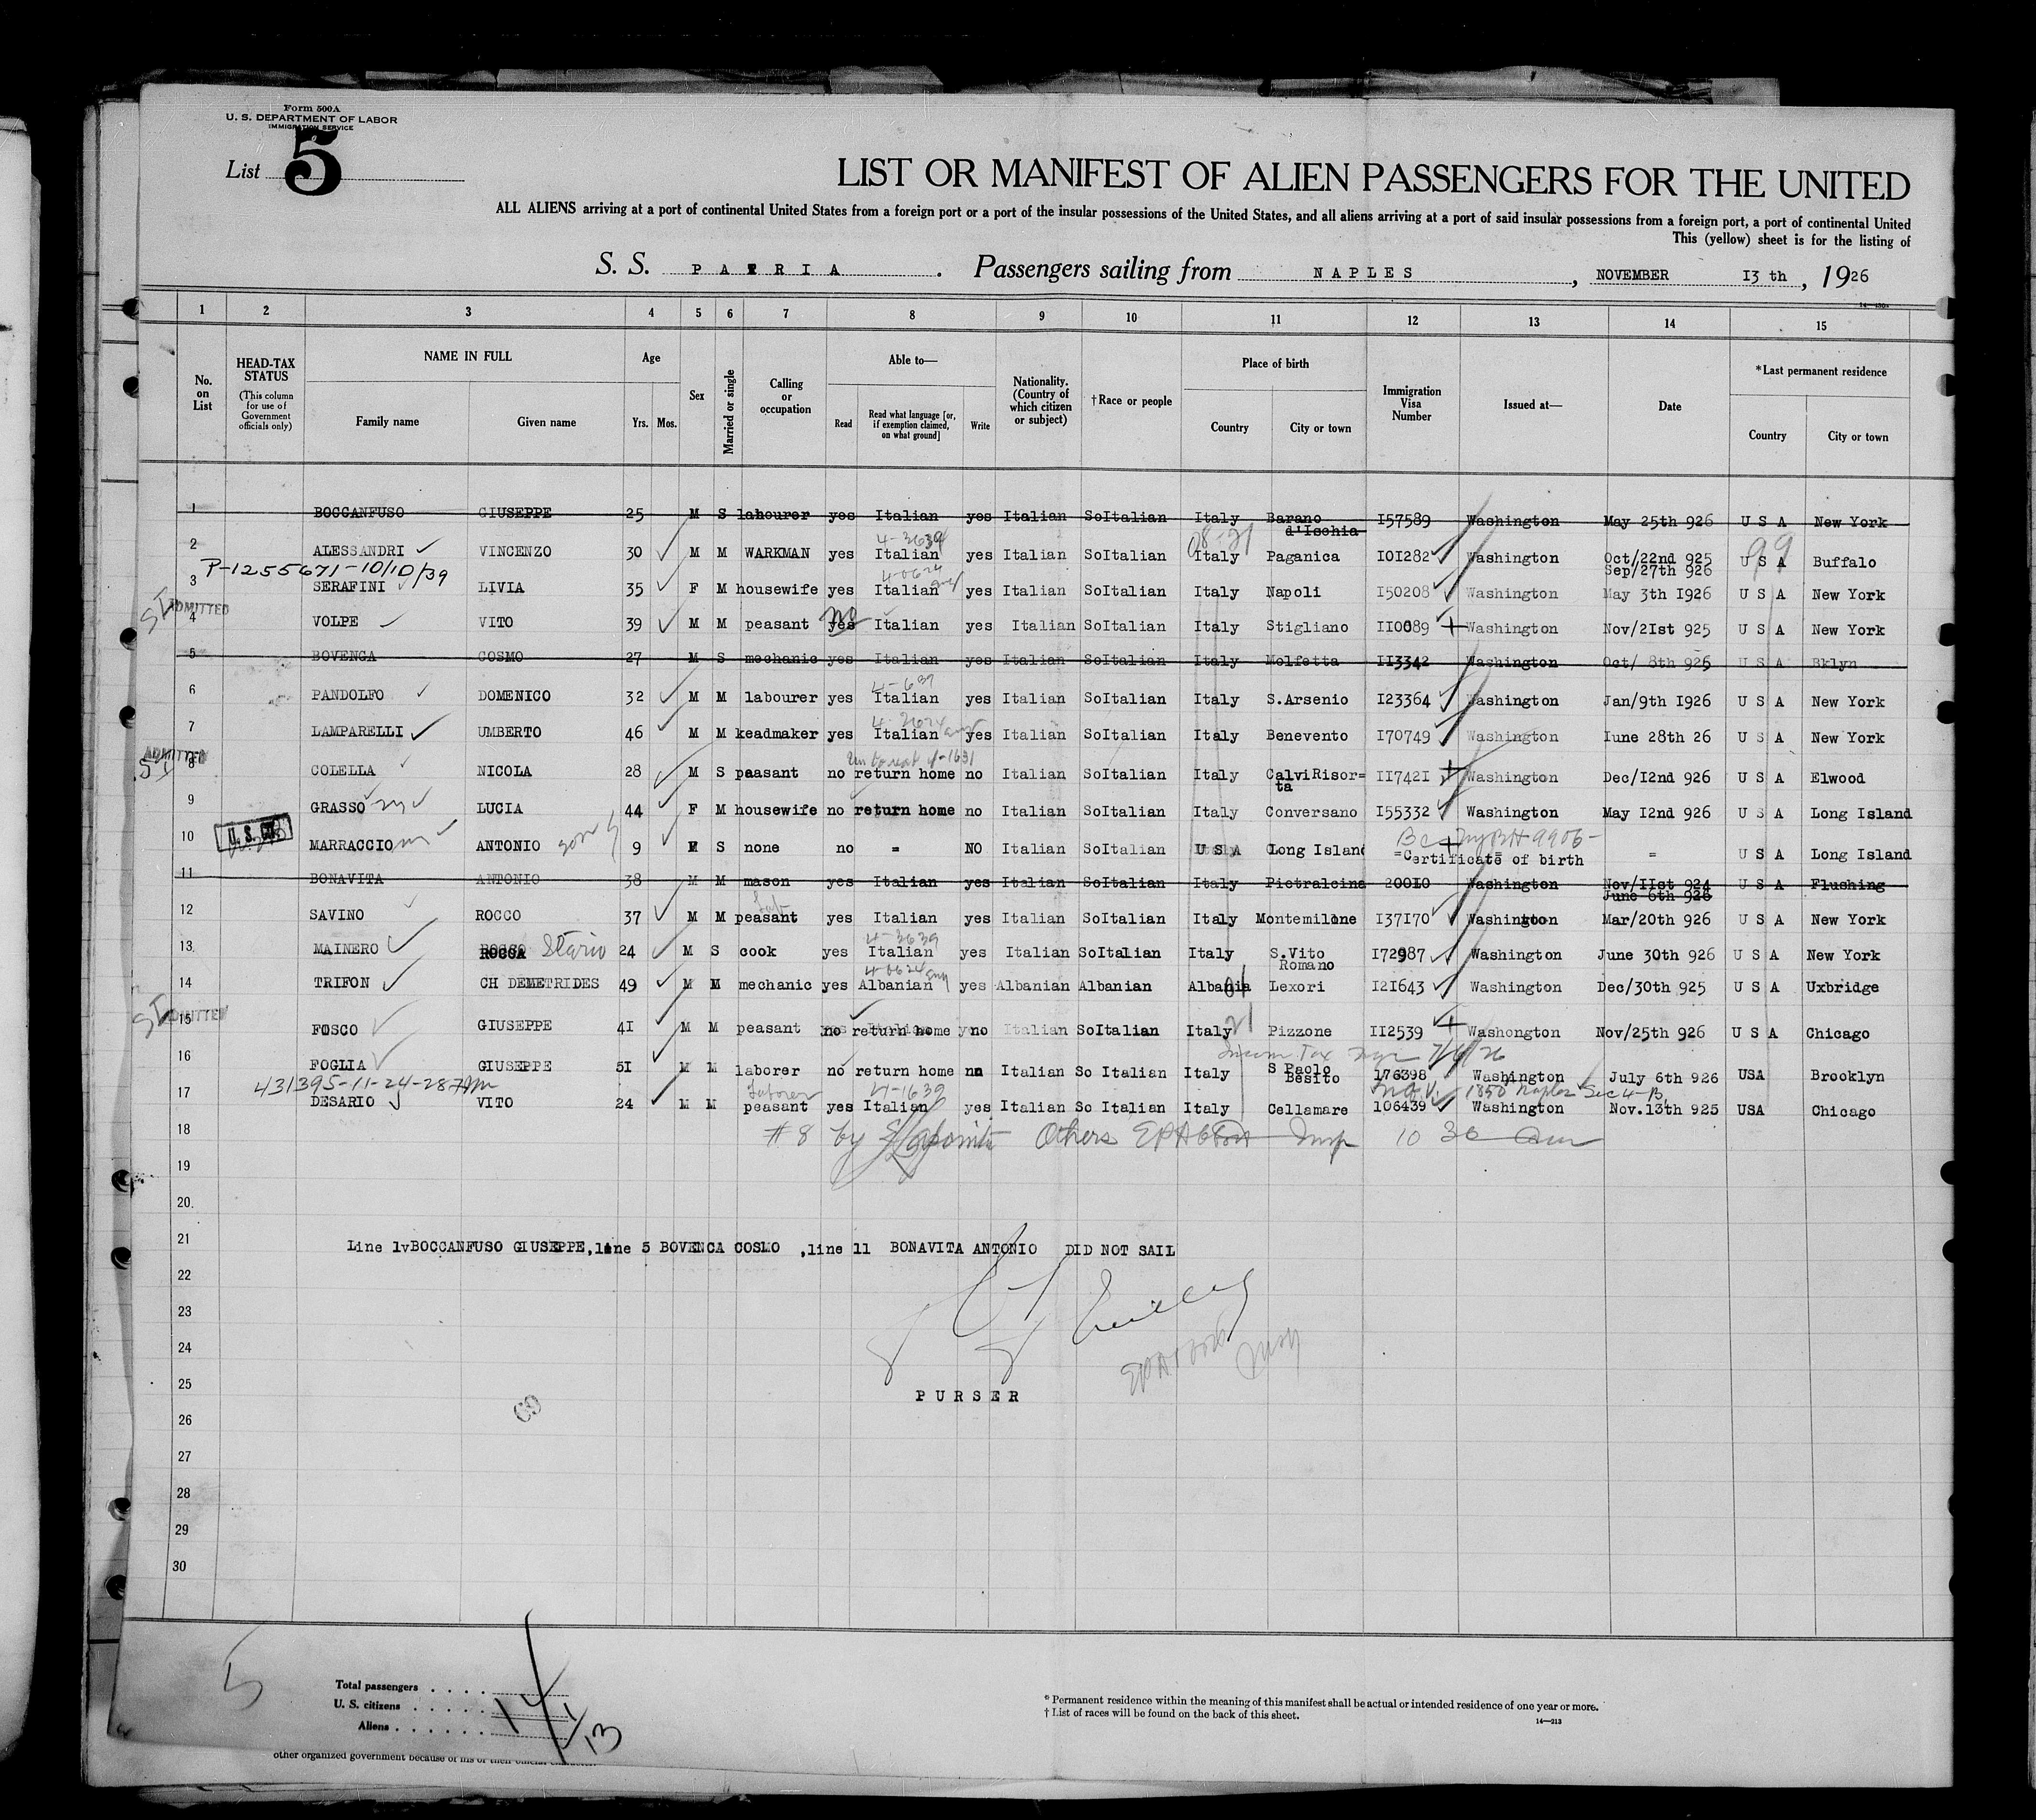 Form 500A
U. S. DEPARTMENT OF LABOR
IMMIGRATION SERVICE
List 5
LIST OR MANIFEST OF ALIEN PASSENGERS FOR THE UNITED
ALL ALIENS arriving at a port of continental United States from a foreign port or a port of the insular possessions of the United States, and all aliens arriving at a port of said insular possessions from a foreign port, a port of continental United
This (yellow) sheet is for the listing of
S. S. PATRIA. Passengers sailing from NAPLES, NOVEMBER I3 th, 1926
1 2 3 4 5 6 7 8 9 10 11 12 13 14 15
No. on List
HEAD-TAX STATUS (This column for use of Government officials only)
NAME IN FULL
Family name Given name
Age
Yrs. Mos.
Sex
Married or single
Calling or occupation
Able to—
Read
Read what language [or, if exemption claimed, on what ground]
Write
Nationality. (Country of which citizen or subject)
†Race or people
Place of birth
Country City or town
Immigration Visa Number
Issued at—
Date
*Last permanent residence
Country City or town
1 BOCCANFUSO GIUSEPPE 25 M S labourer yes Italian yes Italian SoItalian Italy Barano d'Ischia I57589 Washington May 25th 926 U S A New York
4-3639
2 ALESSANDRI VINCENZO 30 M M WARKMAN yes Italian yes Italian SoItalian Italy Paganica I0I282 Washington Oct/22nd 925 Sep/27th 926 U S A Buffalo
99
P-1255671-10/10/39
3 SERAFINI LIVIA 35 F M housewife yes Italian yes Italian SoItalian Italy Napoli I50208 Washington May 3th I926 U S A New York
ADMITTED
4 VOLPE VITO 39 M M peasant yes no Italian yes Italian SoItalian Italy Stigliano II0089 Washington Nov/2Ist 925 U S A New York
5 BOVENGA COSMO 27 M S mechanic yes Italian yes Italian SoItalian Italy Molfetta II3342 Washington Oct/ 8th 925 U S A Bklyn
4-639
6 PANDOLFO DOMENICO 32 M M labourer yes Italian yes Italian SoItalian Italy S.Arsenio I23364 Washington Jan/9th I926 U S A New York
7 LAMPARELLI UMBERTO 46 M M keadmaker yes Italian yes Italian SoItalian Italy Benevento I70749 Washington Iune 28th 26 U S A New York
ADMITTED
8 COLELLA NICOLA 28 M S paasant no return home no Italian SoItalian Italy CalviRisor= ta II742I Washington Dec/I2nd 926 U S A Elwood
9 GRASSO LUCIA 44 F M housewife no return home no Italian SoItalian Italy Conversano I55332 Washington May I2nd 926 U S A Long Island
U. S. CIT.
10 MARRACCIO ANTONIO son 9 9 M S none no = NO Italian SoItalian U S A Long Island =Certificate of birth = U S A Long Island
11 BONAVITA ANTONIO 38 M M mason yes Italian yes Italian SoItalian Italy Pietralcina 20010 Washington Nov/IIst 924 June 6th 926 U S A Flushing
12 SAVINO ROCCO 37 M M peasant yes Italian yes Italian SoItalian Italy Montemilone I37I70 Washington Mar/20th 926 U S A New York
4-3639
13 MAINERO ROCCO Stario 24 M S cook yes Italian yes Italian SoItalian Italy S.Vito Romano I72987 Washington June 30th 926 U S A New York
4-0624
14 TRIFON CH DEMETRIDES 49 M M mechanic yes Albanian yes Albanian Albanian Albania Lexori I2I643 Washington Dec/30th 925 U S A Uxbridge
ADMITTED
15 FOSCO GIUSEPPE 4I M M peasant no return home no Italian SoItalian Italy Pizzone II2539 Washongton Nov/25th 926 U S A Chicago
Income Tax
16 FOGLIA GIUSEPPE 5I M M laborer no return home no Italian So Italian Italy S Paolo Besito 176398 Washington July 6th 926 USA Brooklyn
431395-11-24-28
Laborer 4-1639
1350 Naples Sec 4-B
17 DESARIO VITO 24 M M peasant yes Italian yes Italian So Italian Italy Cellamare 106439 Washington Nov.13th 925 USA Chicago
18 #8 by Others Insp 10 30 am
19
20
21 Line 1vBOCCANFUSO GIUSEPPE,line 5 BOVENCA COSMO ,line 11 BONAVITA ANTONIO DID NOT SAIL
22
23
24
25 PURSER
26
27
28
29
30
5
Total passengers . . . . 14
U. S. citizens . . . . . 1
Aliens . . . . . . 13
* Permanent residence within the meaning of this manifest shall be actual or intended residence of one year or more.
† List of races will be found on the back of this sheet.
14—213
other organized government because of his or their official character